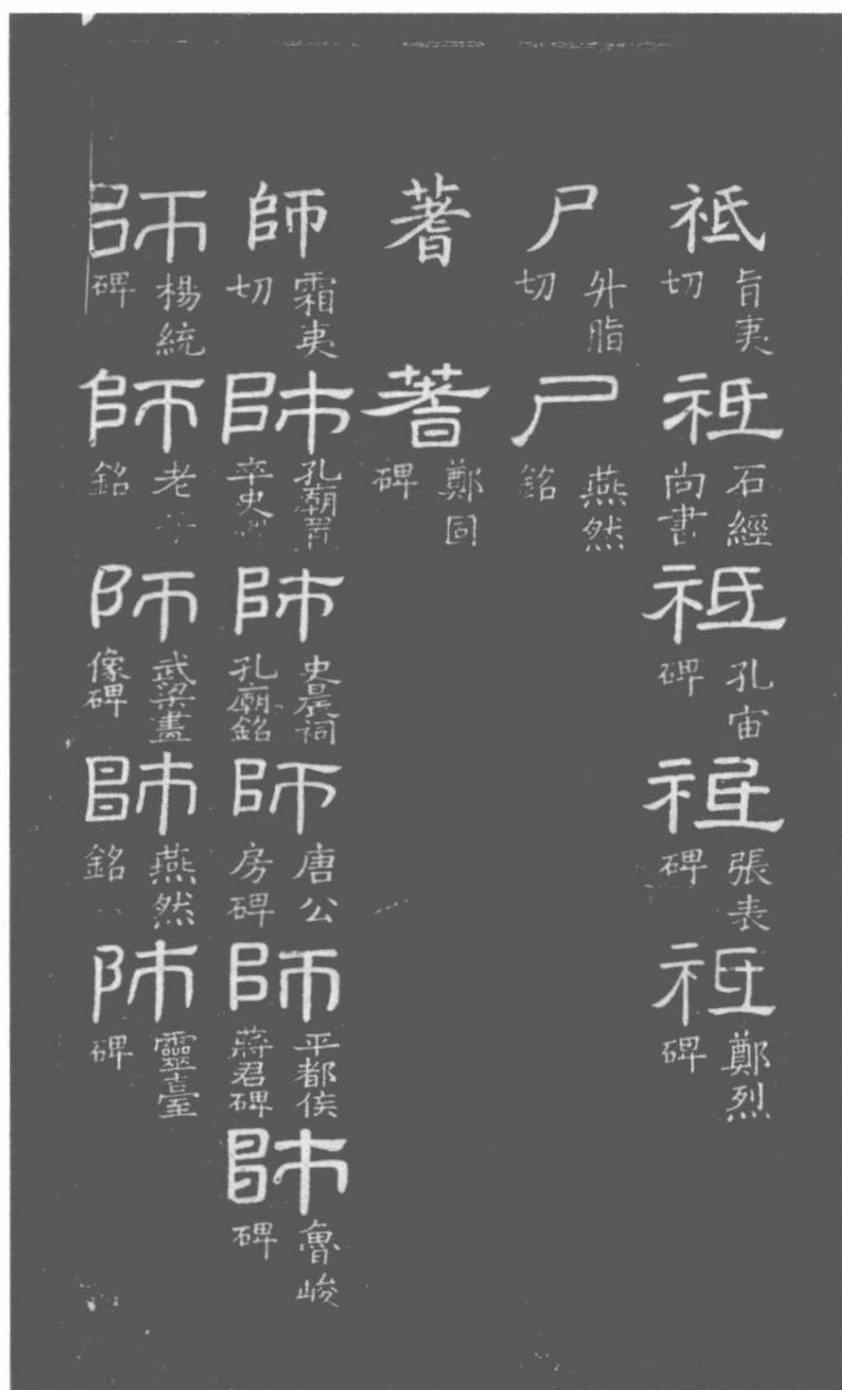 祗 旨夷切 祗 石經尚書 祗 孔宙碑 祗 張表碑 祗 鄭烈碑
尸 升脂切 尸 燕然銘
蓍 蓍 鄭固碑
師 霜夷切 師 孔廟置卒史碑 師 史晨祠孔廟銘 師 唐公房碑 師 平都侯蔣君碑 師 魯峻碑
師 楊統碑 師 老子銘 師 武梁畫像碑 師 燕然銘 師 靈臺碑